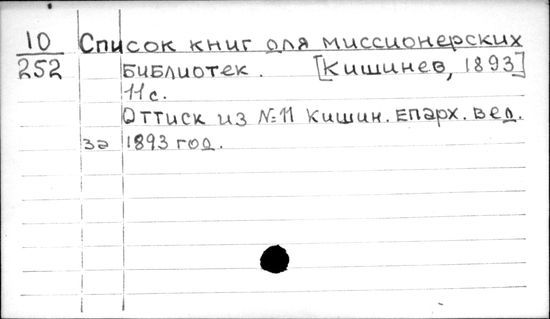 10 Список книг для миссионерских
252 библиотек. [Кишинев, 1893]
11 с.
Оттиск из №11 кишин. епарх. вед.
за 1893 год.